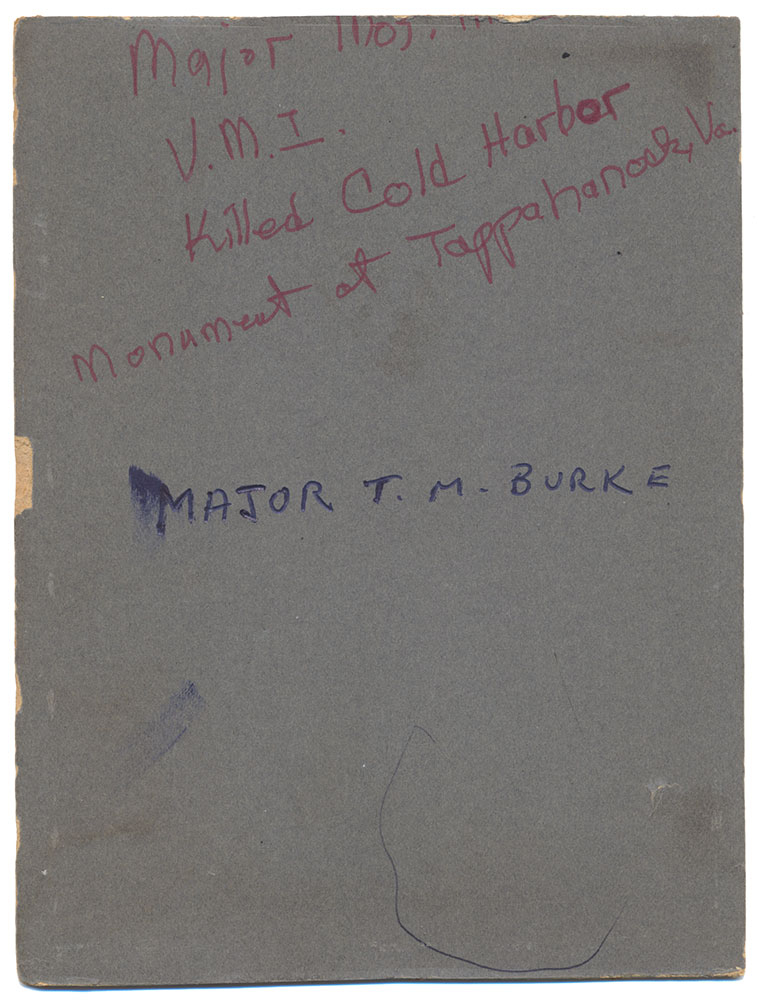 Major Thos.
V.M.I.
Killed Cold Harbor
Monument at Tappahanock, Va.
MAJOR T. M. BURKE